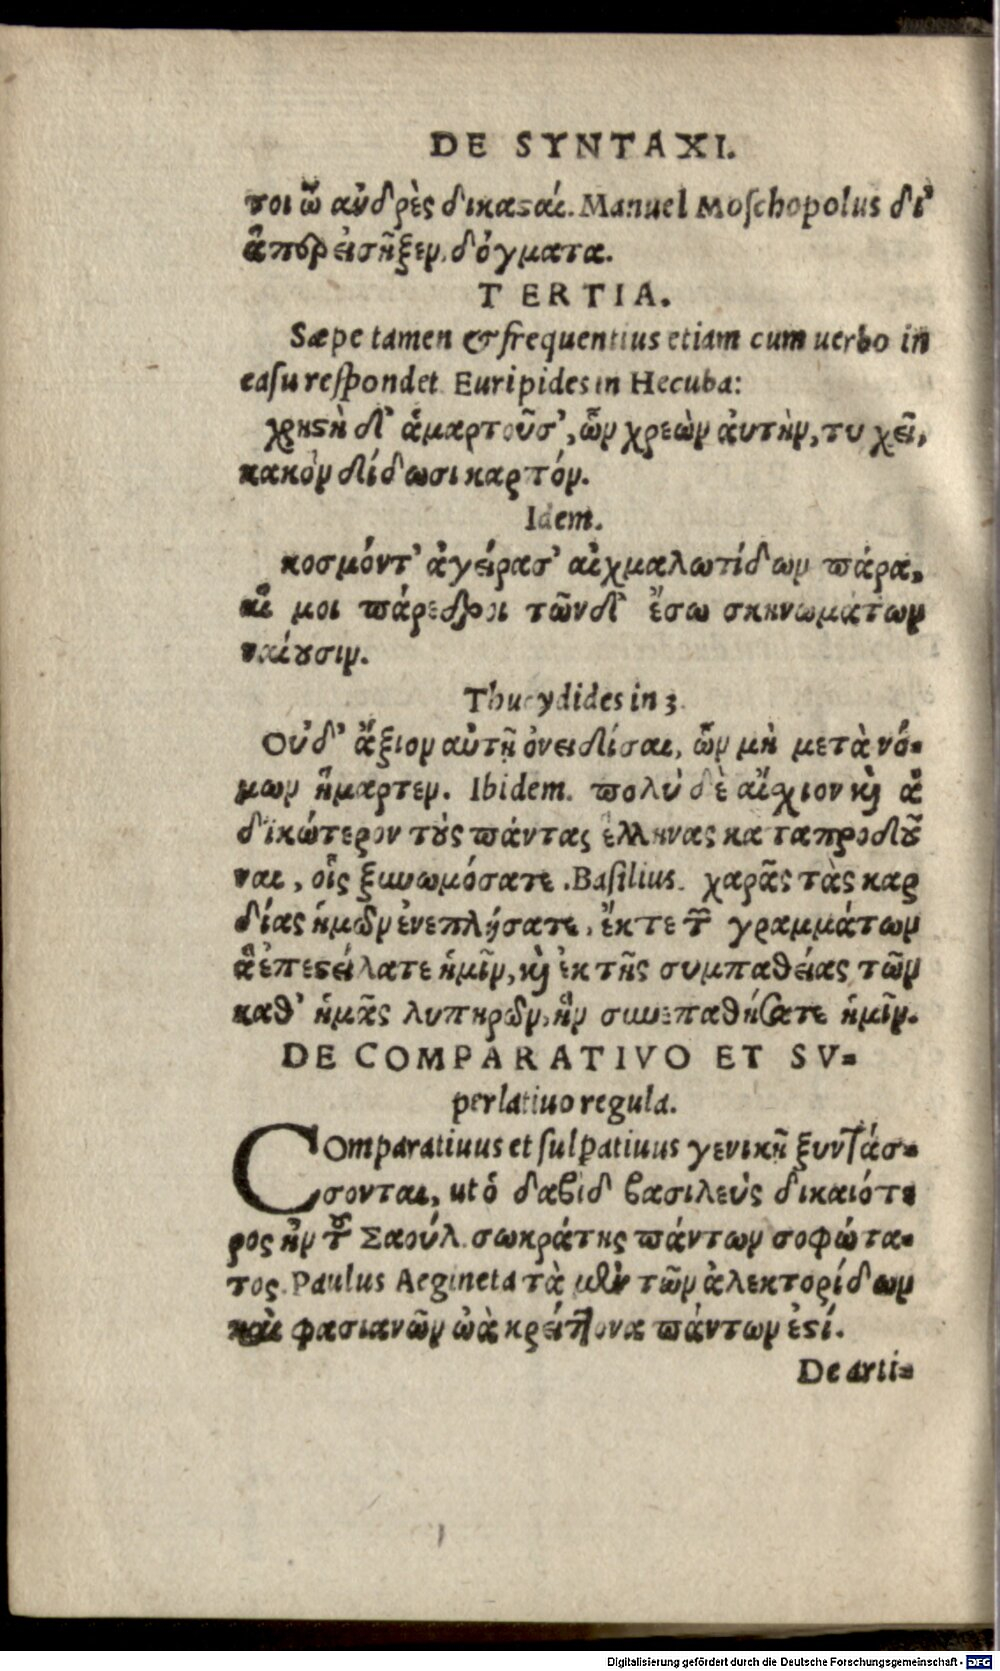 DE SYNTAXI.
τοι ὦ ἀνδρὲς δικασαί. Manuel Moſchopolus δι'
ἅπερ εἰσῆξεν, δόγματα.
TERTIA.
Sæpe tamen & frequentius etiam cum uerbo in
caſu reſpondet Euripides in Hecuba:
χρηστὴ δ' ἁμαρτοῦσ', ὧν χρεὼν ἀυτὴν, τυχεῖ,
κακὸν δίδωσι καρτόν.
Idem.
κοσμόντ' ἀγείρασ' αἰχμαλωτίδων πάρα,
αἵ μοι πάρεδροι τῶνδ' ἔσω σκηνωμάτων
ναίουσιν.
Thucydides in 3.
Οὐδ' ἄξιον αὐτῇ ὀνειδίσαι, ὧν μὴ μετὰ νό-
μων ἥμαρτεν. Ibidem. πολὺ δὲ αἴσχιον καὶ ἀ
δικώτερον τοὺς πάντας ἕλληνας καταπροδοῦ
ναι, οἷς ξυνωμόσατε. Baſilius. χαρᾶς τὰς καρ
δίας ἡμῶν ἐνεπλήσατε, ἔκ τε τῶν γραμμάτων
ἃ ἐπεστείλατε ἡμῖν, καὶ ἐκ τῆς συμπαθείας τῶν
καθ' ἡμᾶς λυπηρῶν, ἣν συνεπαθήσατε ἡμῖν.
DE COMPARATIVO ET SV-
perlatiuo regula.
COmparatiuus et ſuꝑlatiuus γενικῇ ξυντάσ-
σονται, ut ὁ δαβὶδ βασιλεὺς δικαιότε
ρος ἦν τοῦ Σαούλ. σωκράτης πάντων σοφώτα-
τος. Paulus Aegineta τὰ μὲν τῶν ἀλεκτορίδων
καὶ φασιανῶν ὠὰ κρείττονα πάντων ἐστί.
De arti-
Digitalisierung gefördert durch die Deutsche Forschungsgemeinschaft - DFG